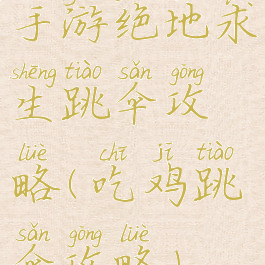 手游绝地求
shēng tiào sǎn gōng
生跳伞攻
lüè chī jī tiào
略(吃鸡跳
sǎn gōng lüè
伞攻略)